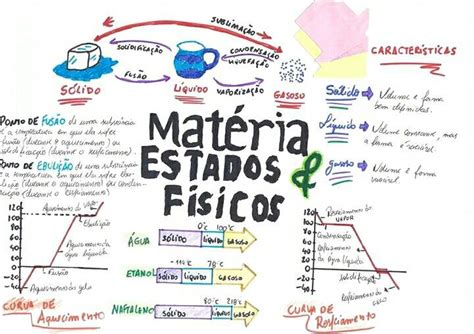 SUBLIMAÇÃO
SOLIDIFICAÇÃO
FUSÃO
CONDENSAÇÃO
LIQUEFAÇÃO
VAPORIZAÇÃO
SÓLIDO
LÍQUIDO
GASOSO
CARACTERÍSTICAS
Sólido → Volume e forma
bem definidas.
Líquido → Volume constante, mas
a forma é variável
gasoso → Volume e forma
variável
PONTO DE FUSÃO de uma substância
é a temperatura em que ela sofre
fusão (durante o aquecimento) ou
solidificação (durante o resfriamento).
PONTO DE EBULIÇÃO de uma substância
é a temperatura em que ela sofre
(durante o aquecimento) ou
(durante o resfriamento)
Matéria
&
ESTADOS
FÍSICOS
120
100
80
60
40
20
0
-20
-40
Aquecimento do vapor
Ebulição
Aquecimento da
água líquida
Fusão
Aquecimento do gelo
CURVA DE
Aquecimento
0°C 100°C
ÁGUA SÓLIDO LÍQUIDO GASOSO
78°C
ETANOL SÓLIDO LÍQUIDO GASOSO
80°C 218°C
NAFTALENO SÓLIDO LÍQUIDO GASOSO
120
100
80
60
40
20
0
-20
-40
Resfriamento do
VAPOR
Condensação
Resfriamento
da água líquida
Solidificação
Resfriamento
do gelo
CURVA DE
Resfriamento